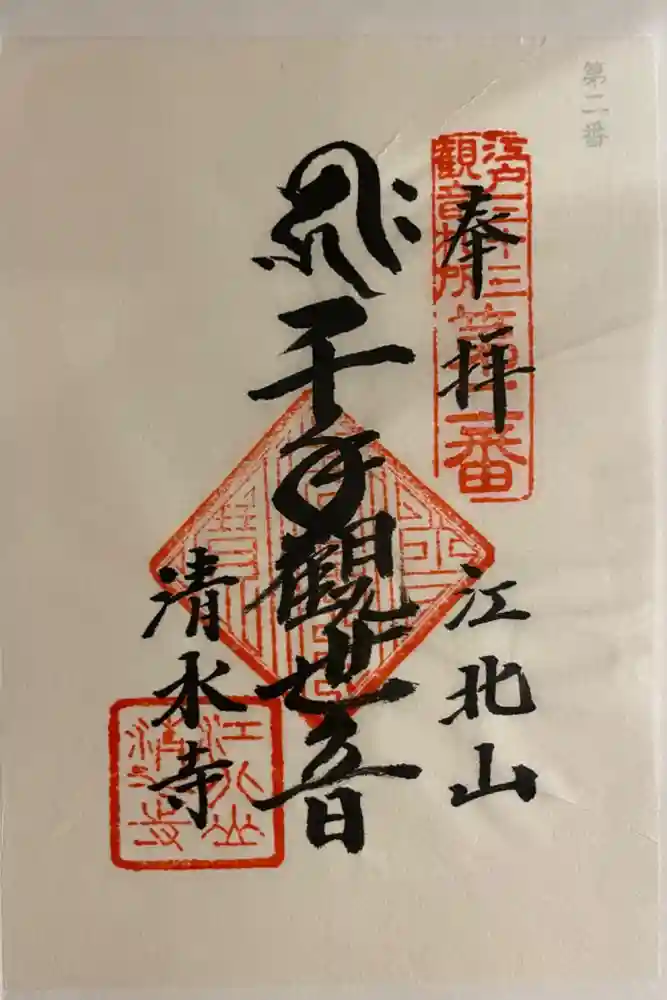 第二番
江戸三十三
観音札所
第二番
奉拝
江北山
千手観世音
清水寺
江北山
清水寺